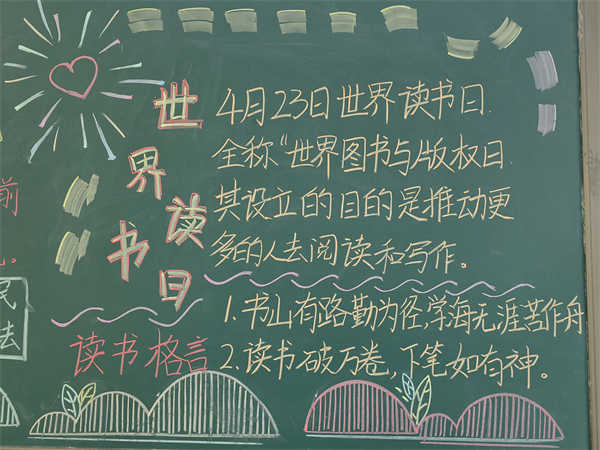 世界读书日
4月23日世界读书日.
全称“世界图书与版权日.
其设立的目的是推动更
多的人去阅读和写作。
读书格言
1.书山有路勤为径,学海无涯苦作舟
2.读书破万卷,下笔如有神。
前
民
法